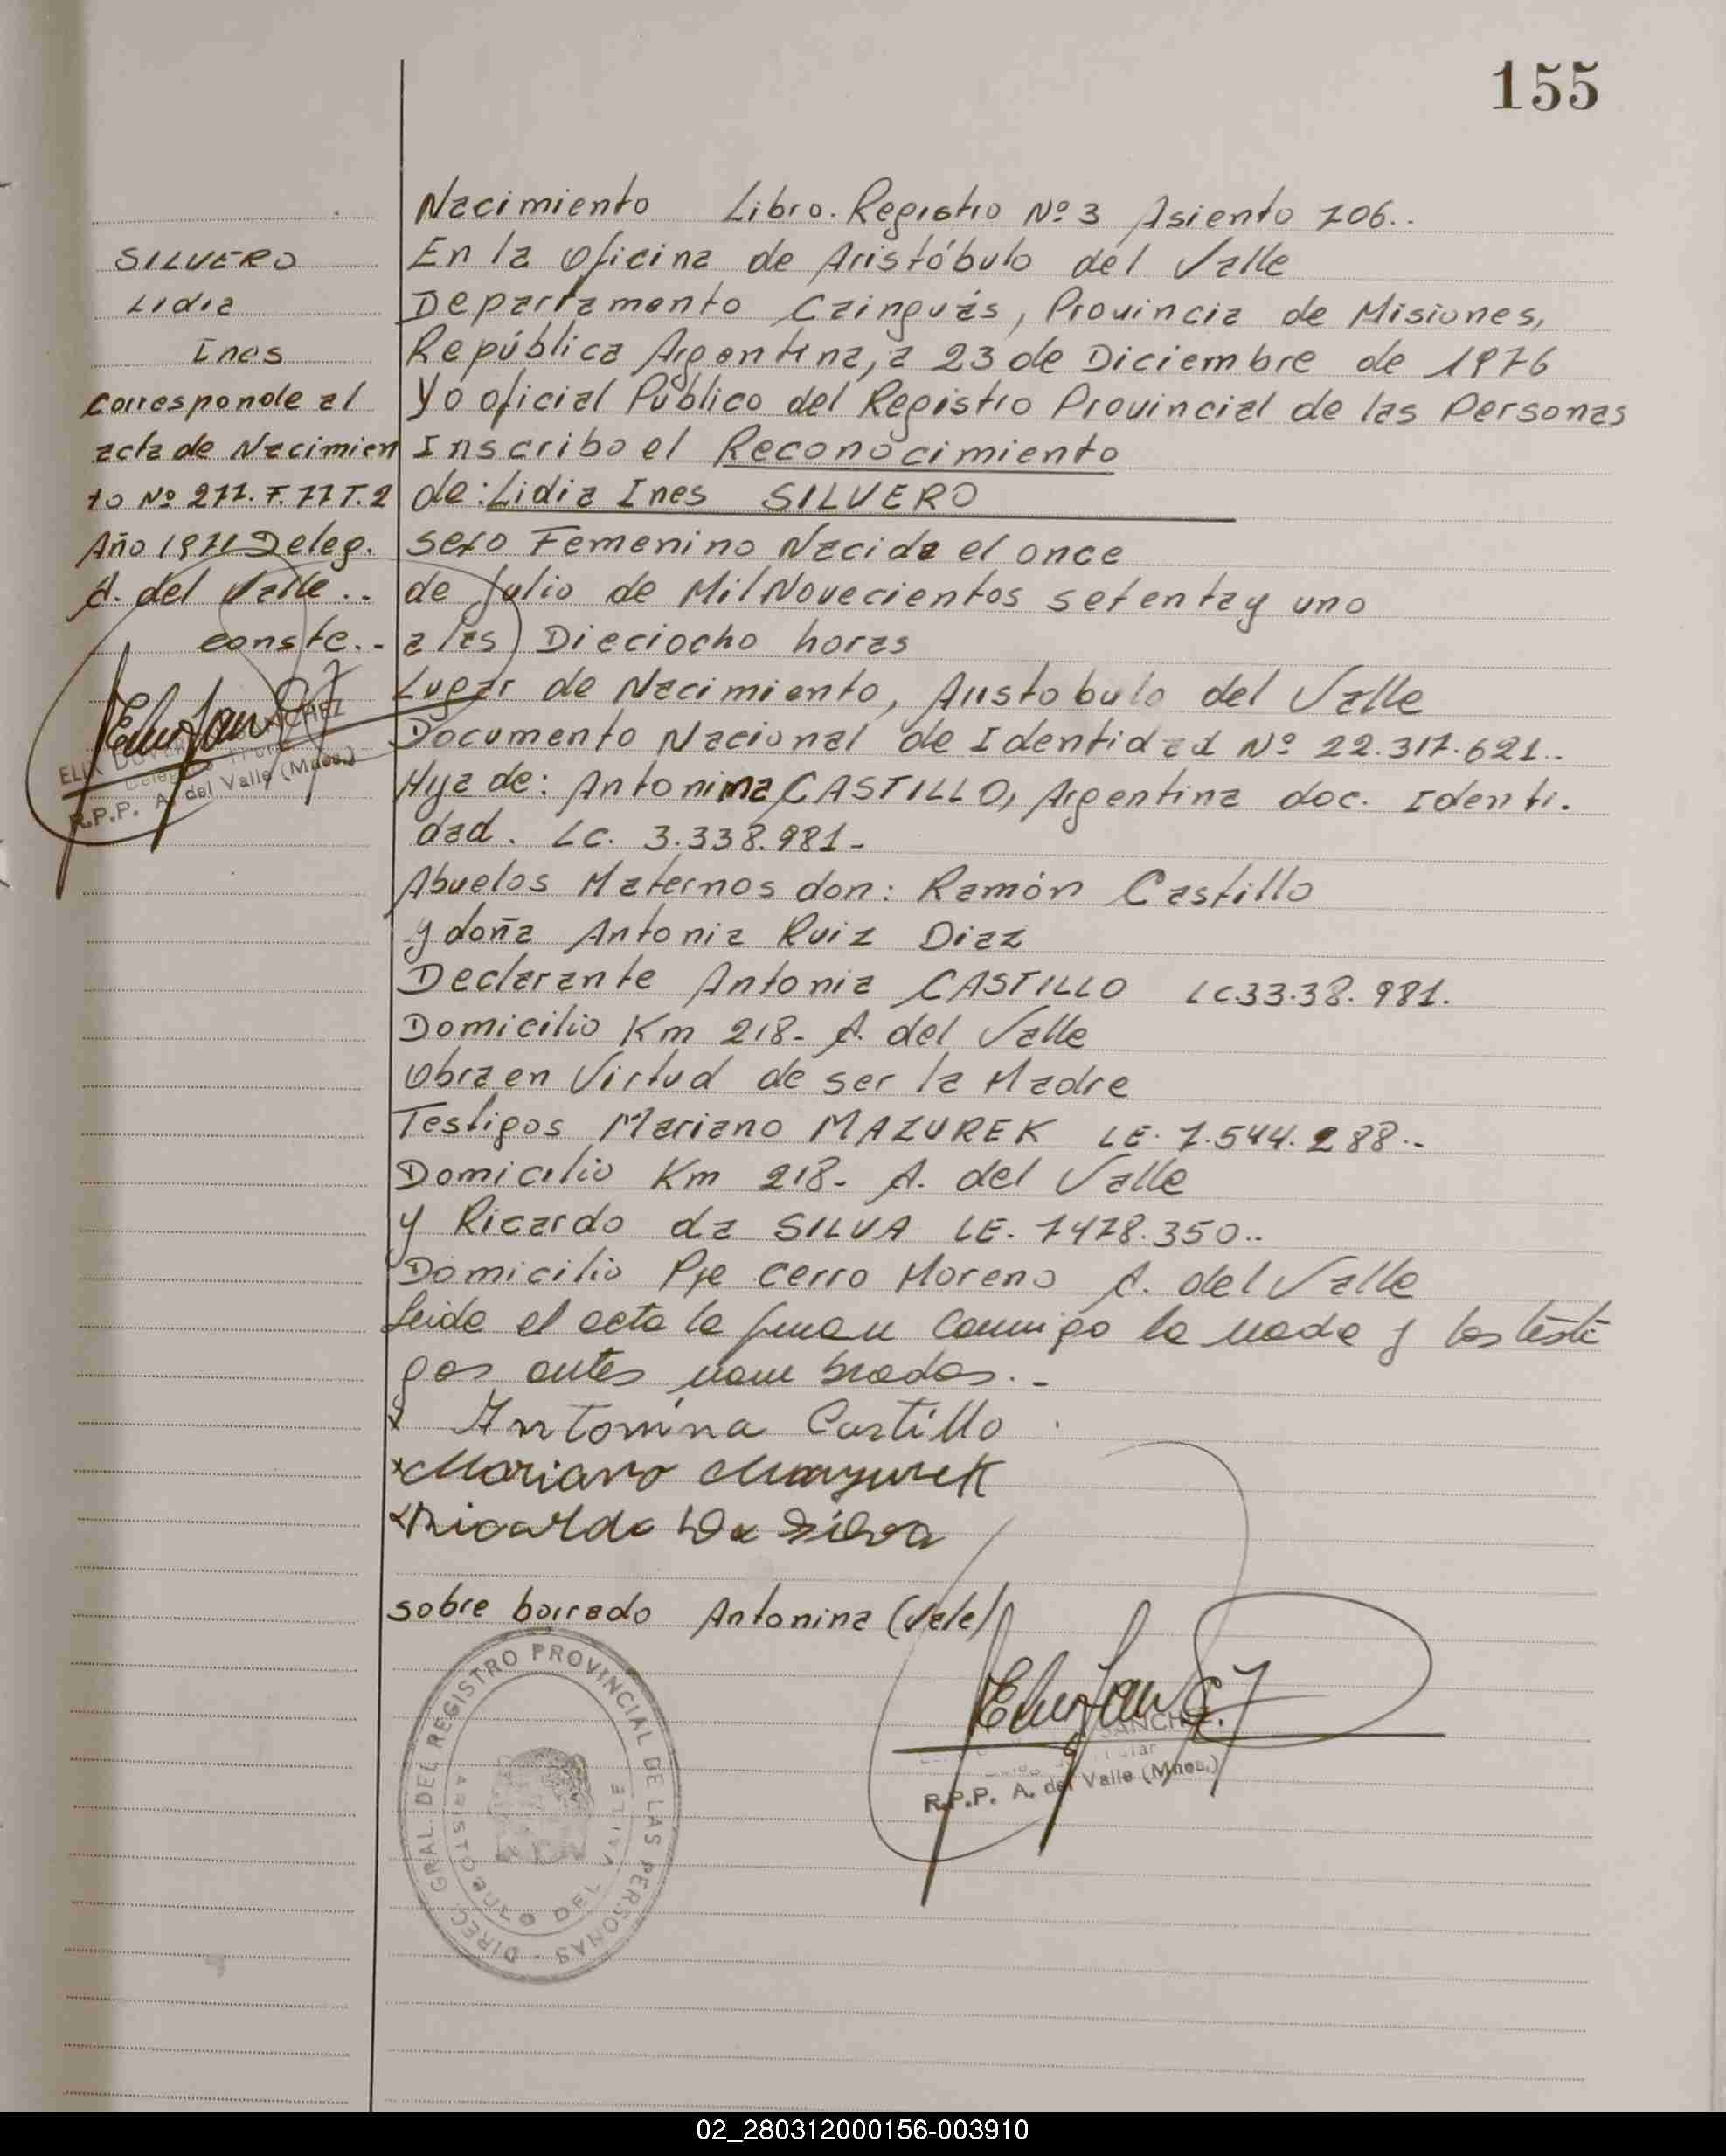 155
SILVERO
Lidia
Ines
corresponde al
acta de Nacimien
to Nº 277. F. 77 T. 2
Año 1971 Deleg.
A. del Valle ..
conste..-
R.P.P. A. del Valle (Mnes.)
Nacimiento Libro. Registro Nº 3 Asiento 706..
En la Oficina de Aristóbulo del Valle
Departamento Cainguás, Provincia de Misiones,
República Argentina, a 23 de Diciembre de 1976
Yo oficial Público del Registro Provincial de las Personas
Inscribo el Reconocimiento
de: Lidia Ines SILVERO
sexo Femenino Nacida el once
de Julio de Mil Novecientos setenta y uno
a las Dieciocho horas
Lugar de Nacimiento, Aristobulo del Valle
Documento Nacional de Identidad Nº 22.317.621..
Hija de: Antonina CASTILLO, Argentina doc. Identi.
dad. LC. 3.338.981-
Abuelos Maternos don: Ramón Castillo
y doña Antonia Ruiz Diaz
Declarante Antonia CASTILLO LC.33.38.981.
Domicilio Km 218- A. del Valle
Obra en Virtud de ser la Madre
Testigos Mariano MAZUREK LE. 7.544.288..-
Domicilio Km 218- A. del Valle
y Ricardo da SILVA LE. 7478.350..
Domicilio Pje Cerro Moreno A. del Valle
Leida el acta la firman conmigo la madre y los testi
gos antes nombrados.-
x Antonina Castillo
x Mariano Mazurek
x Ricardo Da Silva
sobre borrado Antonina (Vale)
R.P.P. A. del Valle (Mnes.)
DIREC. GRAL. DEL REGISTRO PROVINCIAL DE LAS PERSONAS -
ARISTOBULO DEL VALLE
02_280312000156-003910